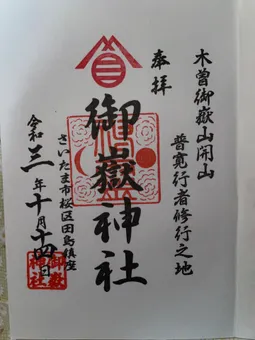 木曽御嶽山開山
普寛行者修行之地
奉拝
御嶽神社
さいたま市桜区田島鎮座
令和三年十月十四日
御嶽
神社